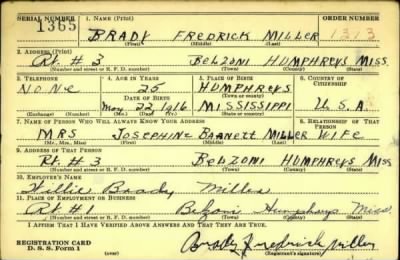 SERIAL NUMBER 1. NAME (Print) ORDER NUMBER
1365 BRADY FREDRICK MILLER 1313
(First) (Middle) (Last)
2. ADDRESS (Print)
Rt. # 3 BELZONI HUMPHREYS MISS.
(Number and street or R. F. D. number) (Town) (County) (State)
3. TELEPHONE 4. AGE IN YEARS 5. PLACE OF BIRTH 6. COUNTRY OF CITIZENSHIP
NONE 25 HUMPHREYS
DATE OF BIRTH (Town or county)
May 22, 1916 MISSISSIPPI U.S.A
(Exchange) (Number) (Mo.) (Day) (Yr.) (State or country)
7. NAME OF PERSON WHO WILL ALWAYS KNOW YOUR ADDRESS 8. RELATIONSHIP OF THAT PERSON
MRS JOSEPHINE BARNETT MILLER WIFE
(Mr., Mrs., Miss) (First) (Middle) (Last)
9. ADDRESS OF THAT PERSON
Rt. # 3 BELZONI HUMPHREYS MISS
(Number and street or R. F. D. number) (Town) (County) (State)
10. EMPLOYER'S NAME
Willie Brady Miller
11. PLACE OF EMPLOYMENT OR BUSINESS
Rt # 1 Belzoni Humphreys Miss
(Number and street or R. F. D. number) (Town) (County) (State)
I AFFIRM THAT I HAVE VERIFIED ABOVE ANSWERS AND THAT THEY ARE TRUE.
REGISTRATION CARD
D. S. S. Form 1 Brady Fredrick Miller
(over) (Registrant's signature)